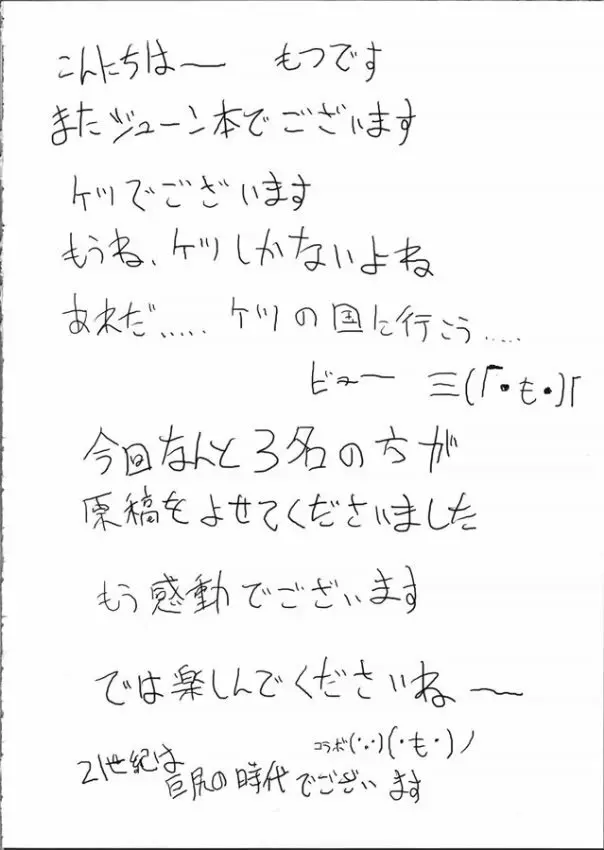 こんにちはー もつです
またジューン本でございます
ケツでございます
もうね、ケツしかないよね
あれだ..... ケツの国に行こう.....
ビューー 三(「・も・)「
今回なんと3名の方が
原稿をよせてくださいました
もう感動でございます
では楽しんでくださいねー
コラボ(・,・)(・も・)ノ
21世紀は
巨尻の時代でございます